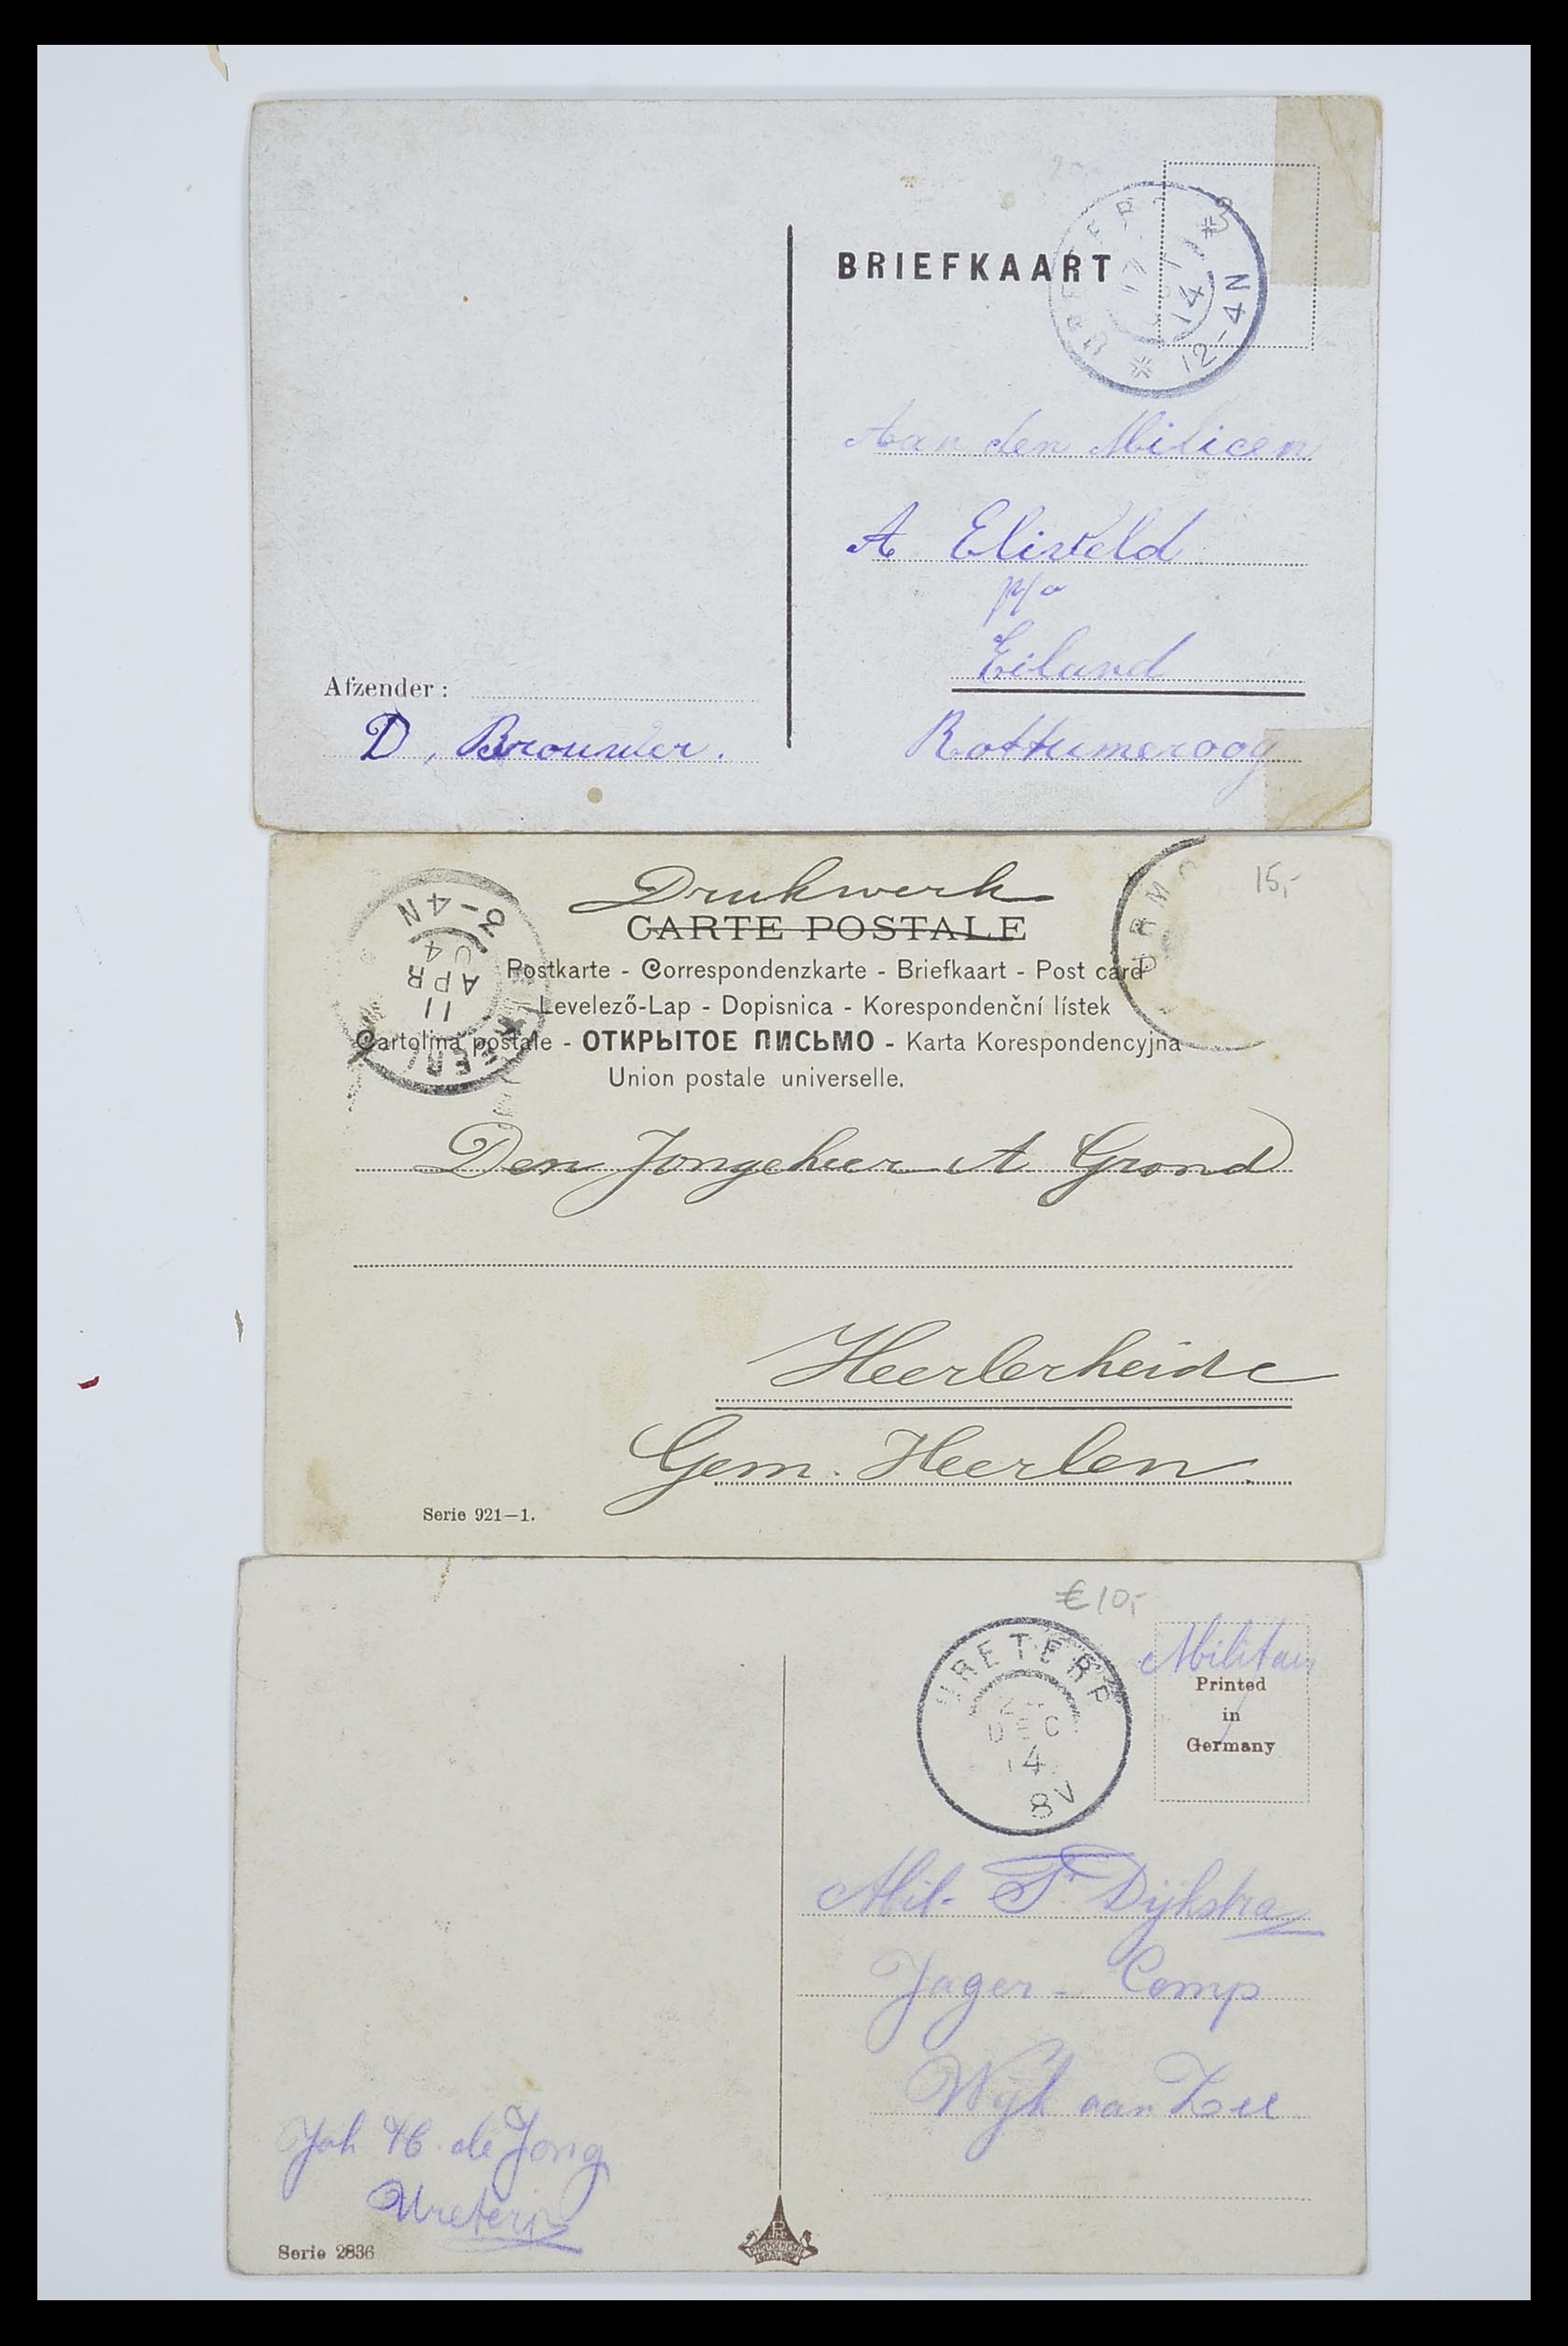 BRIEFKAART
12-4N
14
Aan den Milicen
A Elisveld
p/a
Eiland
Rottumeroog
Afzender :
D. Brouwer.
Drukwerk
CARTE POSTALE
15,-
3-4N
11
APR
04
Postkarte - Correspondenzkarte - Briefkaart - Post card
Levelező-Lap - Dopisnica - Korespondenční lístek
Cartolina postale - ОТКРЫТОЕ ПИСЬМО - Karta Korespondencyjna
Union postale universelle.
Den Jongeheer A Grond
Heerlerheide
Gem. Heerlen
Serie 921—1.
€10,-
URETERP
DEC
14
8V
Militair
Printed
in
Germany
Mil. T. Dijkstra
Jager - Comp
Wijk aan Zee
Joh H. de Jong
Ureterp
Serie 2836